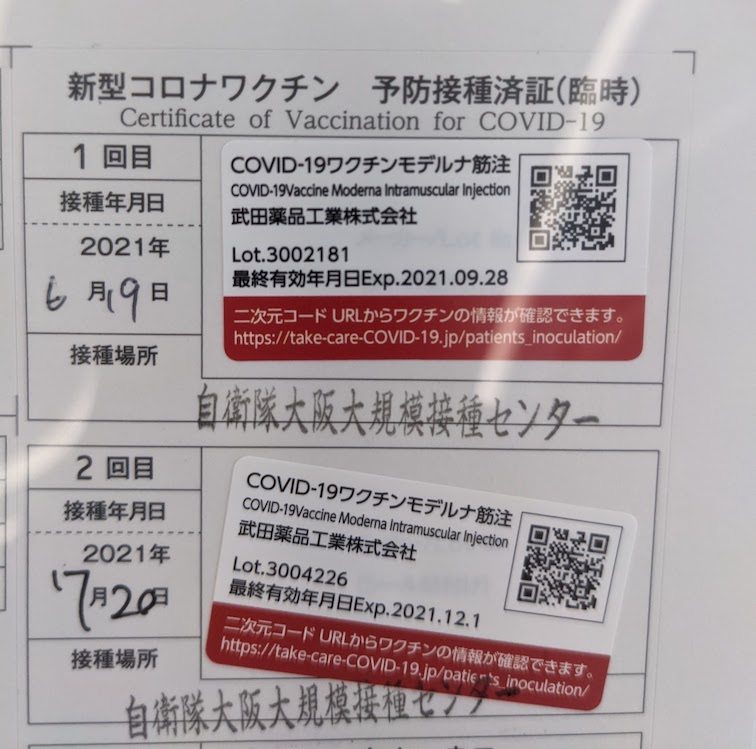 新型コロナワクチン 予防接種済証(臨時)
Certificate of Vaccination for COVID-19
1回目
接種年月日
2021年
6月19日
接種場所
COVID-19ワクチンモデルナ筋注
COVID-19Vaccine Moderna Intramuscular Injection
武田薬品工業株式会社
Lot.3002181
最終有効年月日Exp.2021.09.28
二次元コード URLからワクチンの情報が確認できます。
https://take-care-COVID-19.jp/patients_inoculation/
自衛隊大阪大規模接種センター
2回目
接種年月日
2021年
7月20日
接種場所
COVID-19ワクチンモデルナ筋注
COVID-19Vaccine Moderna Intramuscular Injection
武田薬品工業株式会社
Lot.3004226
最終有効年月日Exp.2021.12.1
二次元コード URLからワクチンの情報が確認できます。
https://take-care-COVID-19.jp/patients_inoculation/
自衛隊大阪大規模接種センター